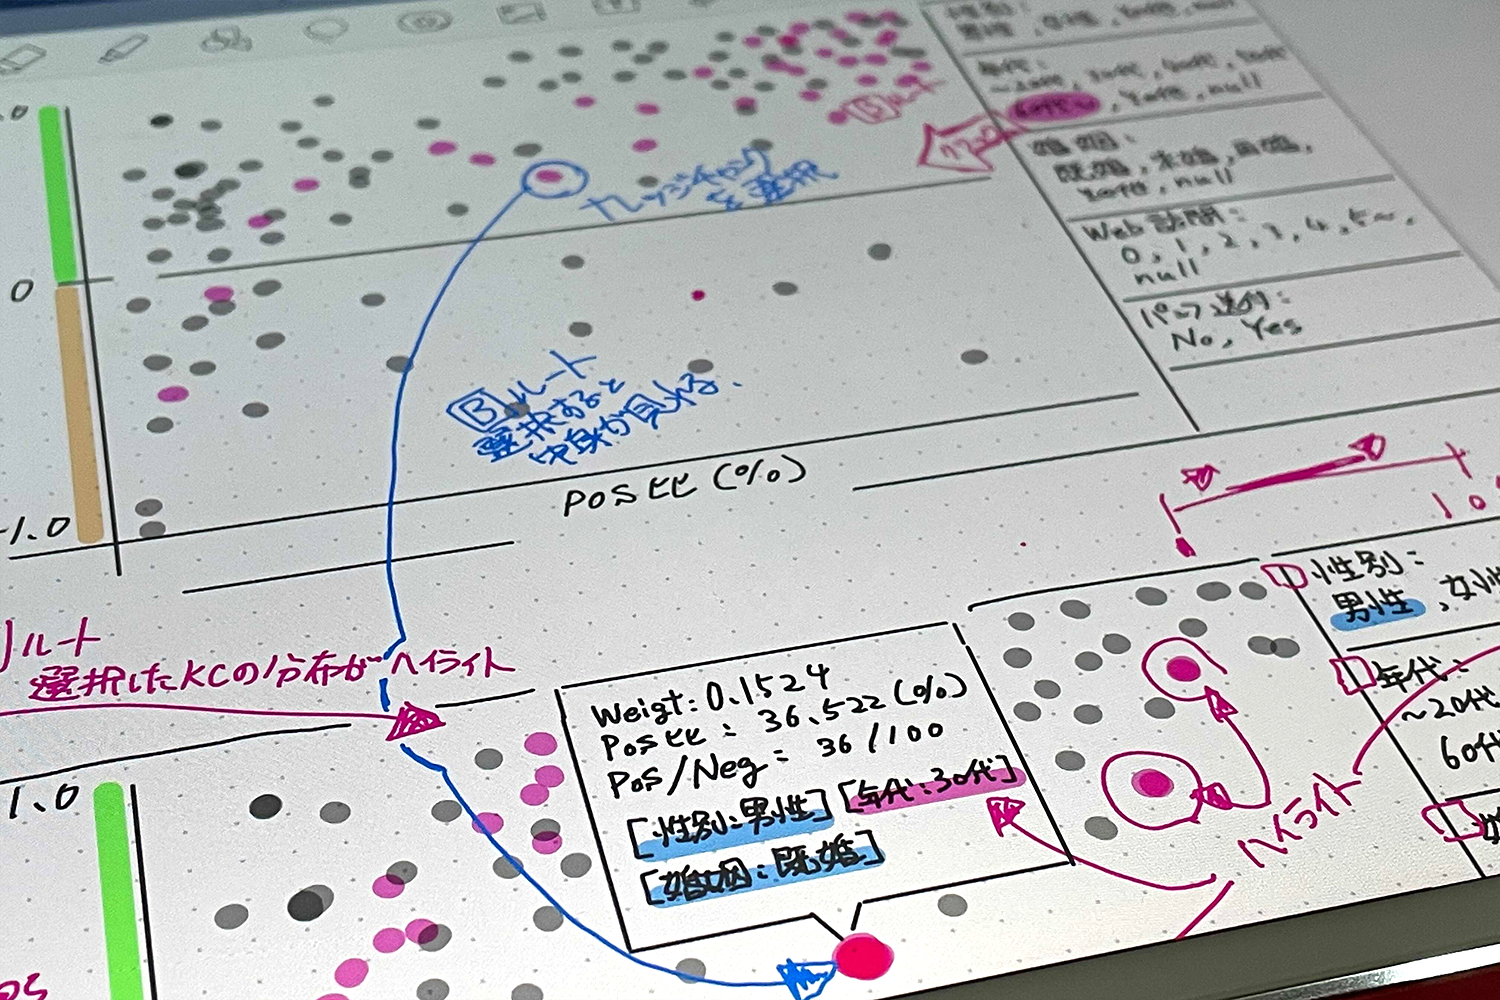 .0
0
-1.0
ナレッジチャンク
を選択
Bルート
選択すると
中身が見れる.
Bルート
POS比(%)
年代:
~20代, 30代, 40代, 50代
60代~
null
婚姻:
既婚, 未婚,
null
Web訪問:
0, 1, 2, 3, 4, 5~,
null
パンフ送付:
No, Yes
ルート
選択したKCの分布がハイライト
1.0
Weigt: 0.1524
POS比: 36.522(%)
POS/Neg: 36/100
[性別:男性] [年代:30代]
[婚姻:既婚]
1.0
性別:
男性, 女性
年代:
~20代
60代
ハイライト